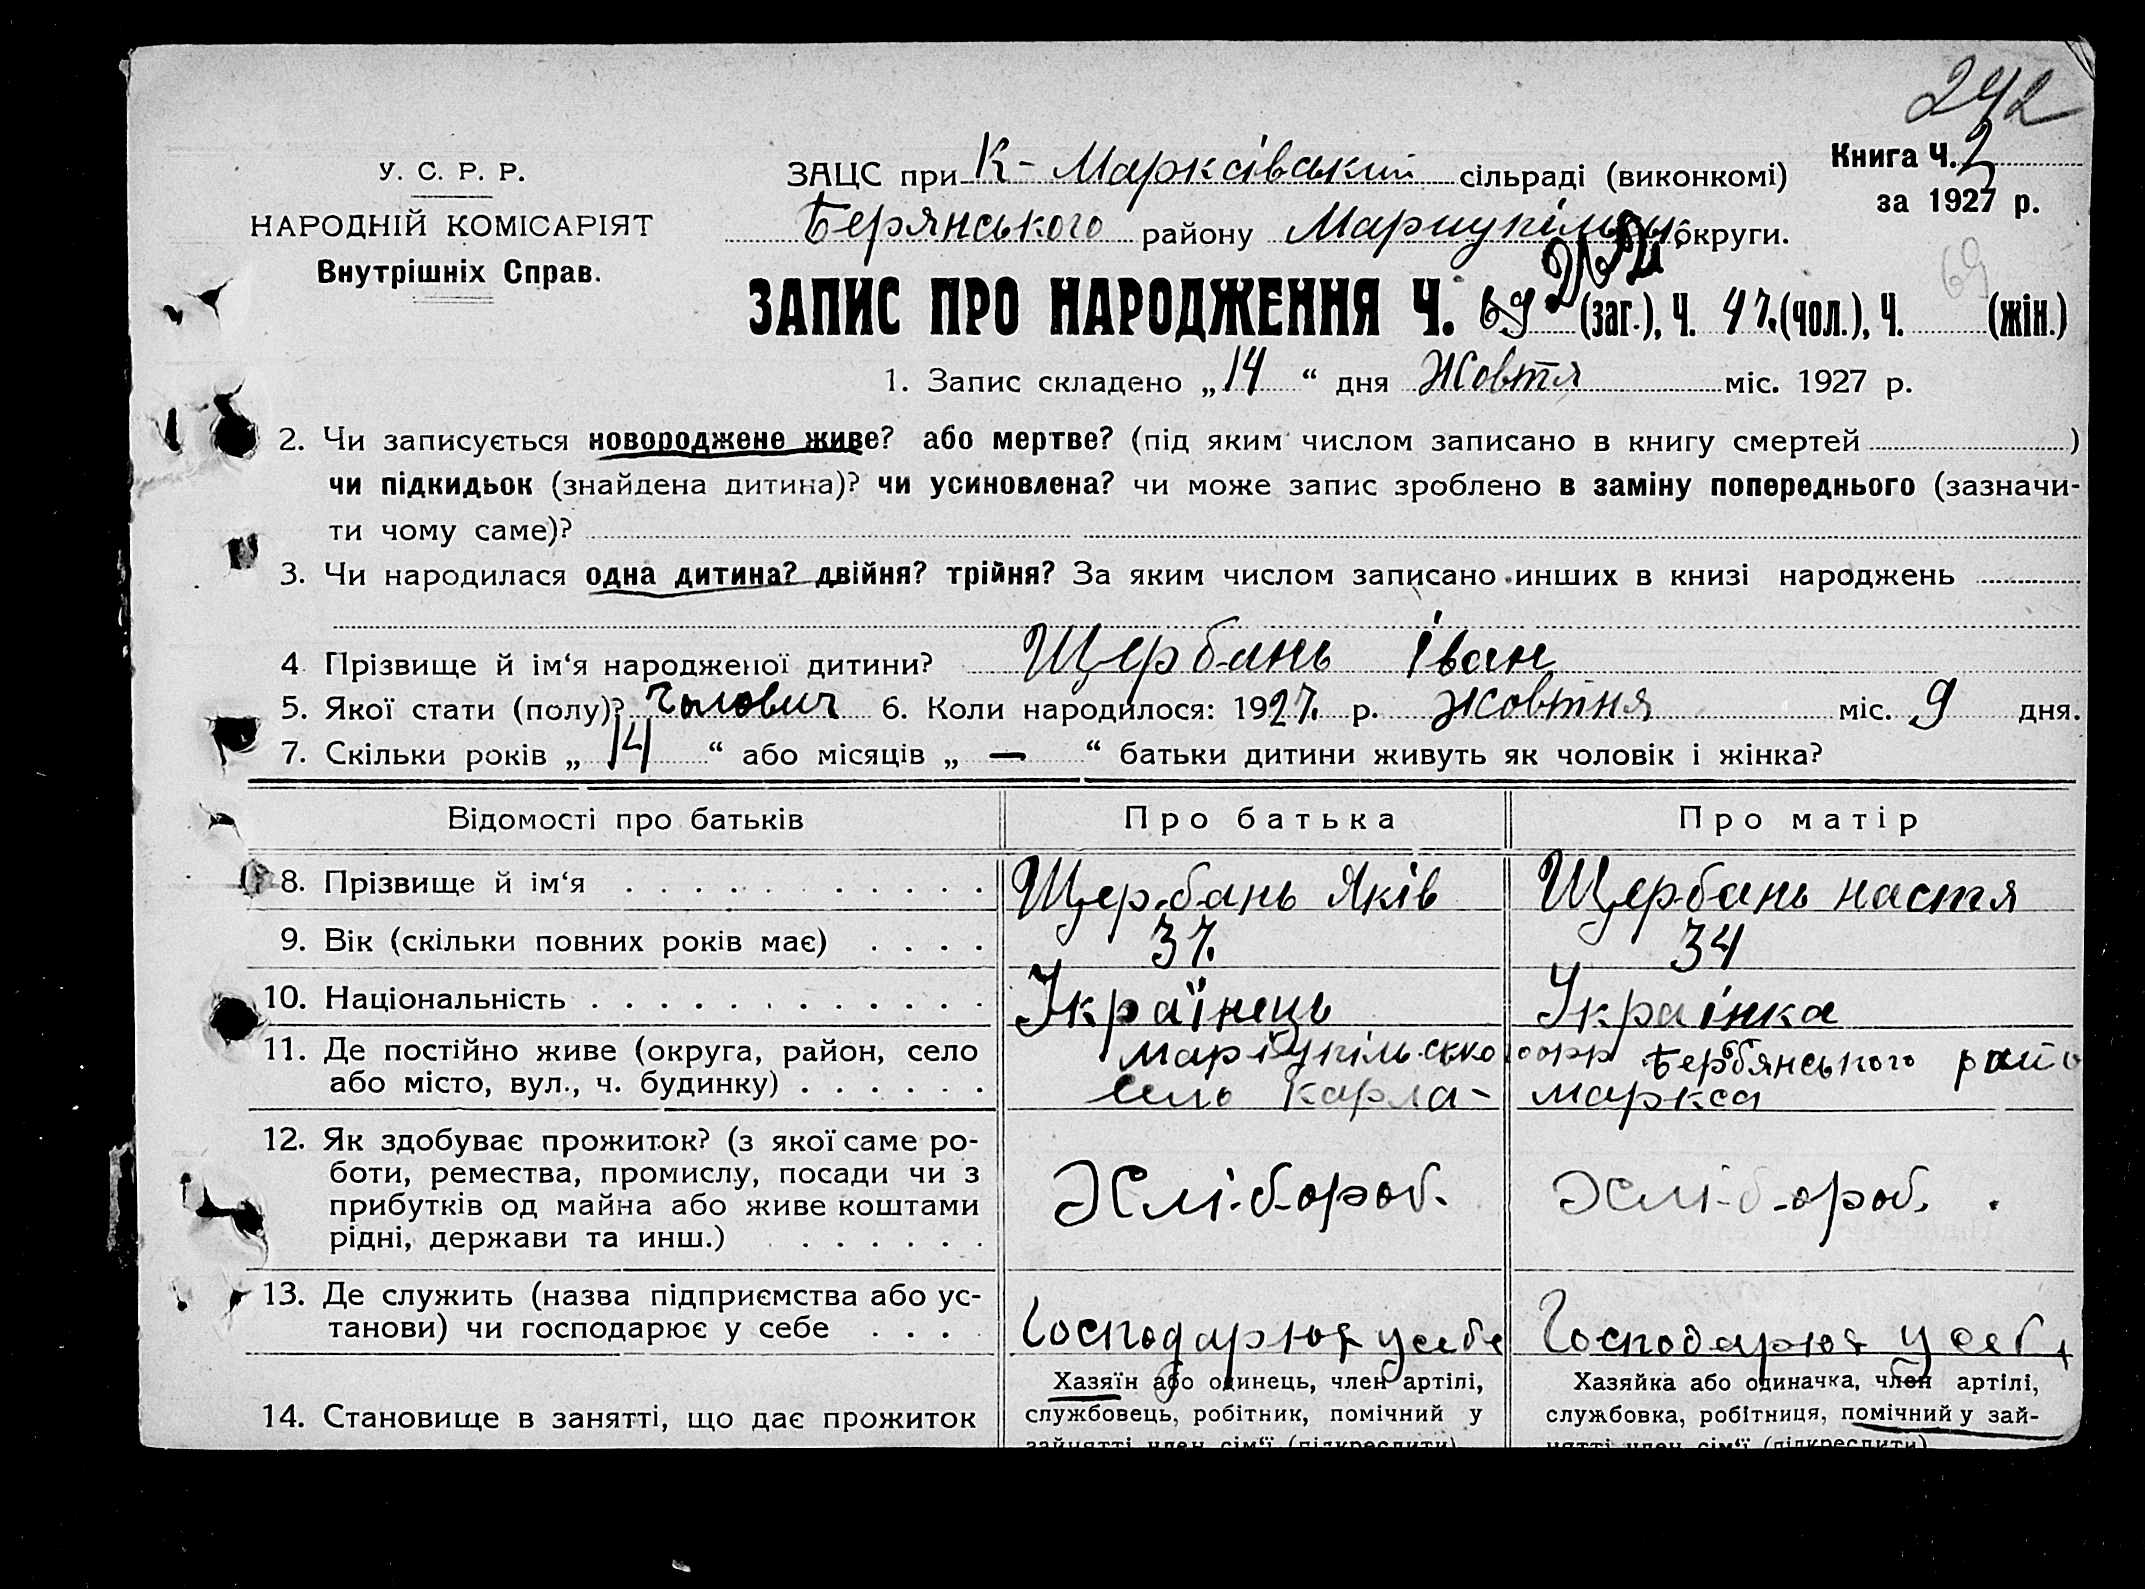 292
У. С. Р. Р.
НАРОДНІЙ КОМІСАРІЯТ
Внутрішніх Справ.
ЗАЦС при К-Марксівський сільраді (виконкомі)
Берянського району Мариупільськ округи.
Книга Ч. 2
за 1927 р.
69
ЗАПИС ПРО НАРОДЖЕННЯ Ч. 69 (заг.), Ч. 47. (чол.), Ч. (жін.)
1. Запис складено „ 14 “ дня Жовтя міс. 1927 р.
2. Чи записується новороджене живе? або мертве? (під яким числом записано в книгу смертей )
чи підкидьок (знайдена дитина)? чи усиновлена? чи може запис зроблено в заміну попереднього (зазначи-
ти чому саме)?
3. Чи народилася одна дитина? двійня? трійня? За яким числом записано инших в книзі народжень
4 Прізвище й ім‘я народженої дитини? Щербань Іван
5. Якої стати (полу)? Чолович 6. Коли народилося: 1927. р. жовтня міс. 9 дня.
7. Скільки років „ 14 “ або місяців „ — “ батьки дитини живуть як чоловік і жінка?
Відомості про батьків Про батька Про матір
8. Прізвище й ім‘я . . . . . . . . . . . Щербань Яків Щербань настя
9. Вік (скільки повних років має) . . . . 37. 34
10. Національність . . . . . . . . . . . . Українець Українка
11. Де постійно живе (округа, район, село маріупільсько Бербянського райо
або місто, вул., ч. будинку) . . . . . . село Карла- маркса
12. Як здобуває прожиток? (з якої саме ро-
боти, ремества, промислу, посади чи з
прибутків од майна або живе коштами Хлі-б-ороб. Хлі-б-ороб.
рідні, держави та инш.) . . . . . .
13. Де служить (назва підприємства або ус-
танови) чи господарює у себе . . . . Господарює у себе Господарює у себе
14. Становище в занятті, що дає прожиток
Хазяїн або одинець, член артілі,
службовець, робітник, помічний у
зайнятті член сім‘ї (підкреслити)
Хазяйка або одиначка, член артілі,
службовка, робітниця, помічний у зай-
нятті член сім‘ї (підкреслити)